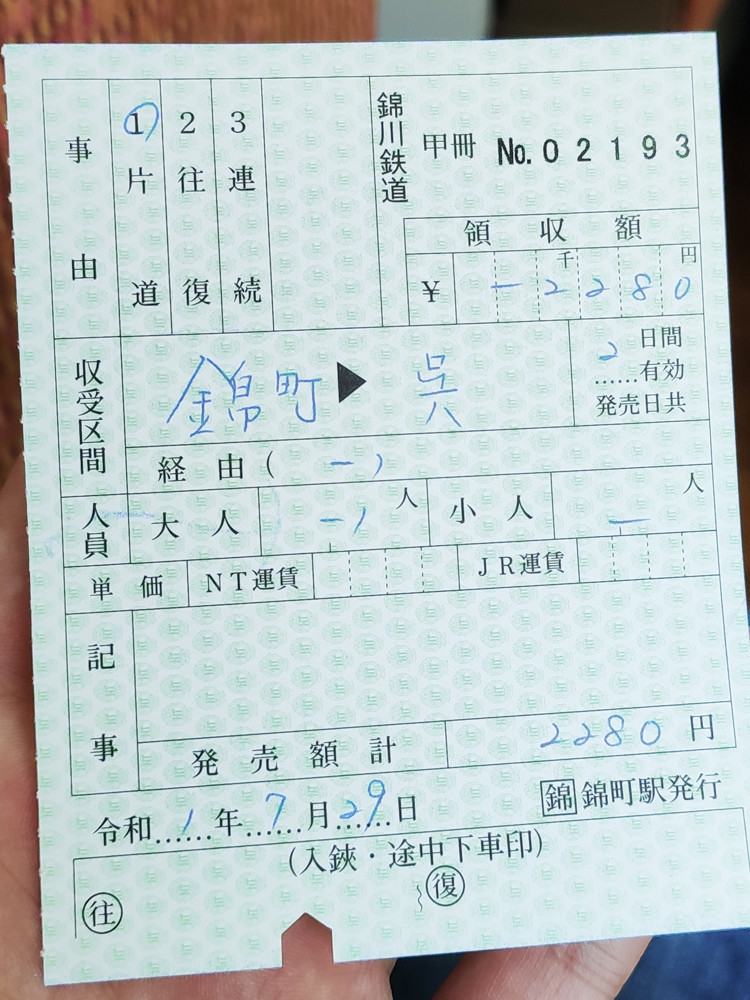 事由
1 片道
2 往復
3 連続
錦川鉄道
甲冊 No. 02193
領収額
千 円
¥ -2280
収受区間
錦町▶呉
2日間
......有効
発売日共
経由(-)
人員
大人 -1人 小人 - 人
単価 NT運賃 JR運賃
記事
発売額計 2280円
令和1年7月29日
錦 錦町駅発行
(入鋏・途中下車印)
往 復